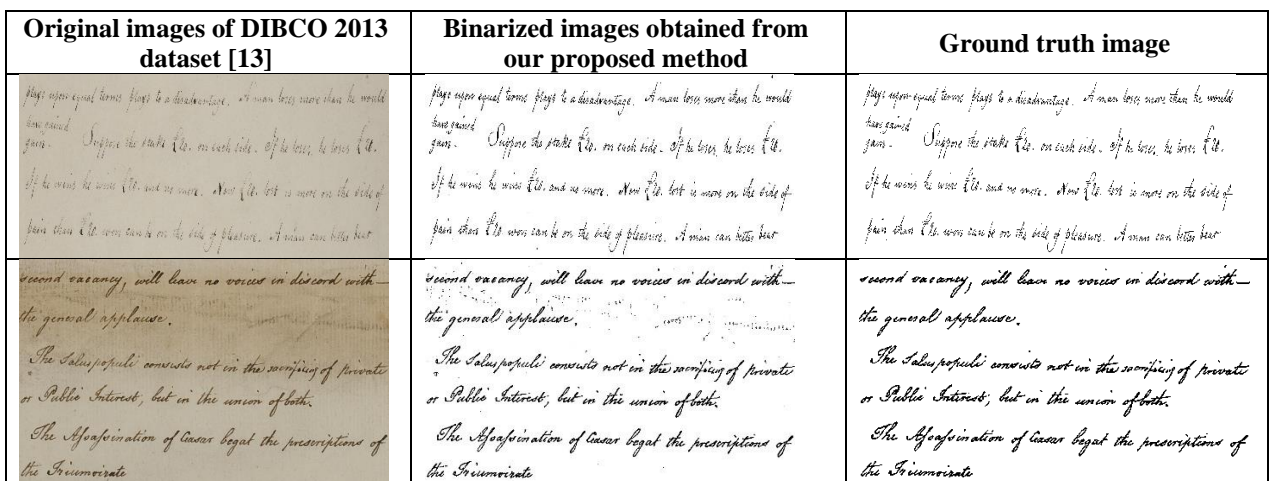 Original images of DIBCO 2013 dataset [13]
Binarized images obtained from our proposed method
Ground truth image
plays upon equal terms plays to a disadvantage. A man loses more than he would
have gained
gain. Suppose the stake £20. on each side. If he loses, he loses £20.
If he wins he wins £20. and no more. Now £20. lost is more on the side of
pain than £20. won can be on the side of pleasure. A man can better bear
plays upon equal terms plays to a disadvantage. A man loses more than he would
have gained
gain. Suppose the stake £20. on each side. If he loses, he loses £20.
If he wins he wins £20. and no more. Now £20. lost is more on the side of
pain than £20. won can be on the side of pleasure. A man can better bear
plays upon equal terms plays to a disadvantage. A man loses more than he would
have gained
gain. Suppose the stake £20. on each side. If he loses, he loses £20.
If he wins he wins £20. and no more. Now £20. lost is more on the side of
pain than £20. won can be on the side of pleasure. A man can better bear
second vacancy, will leave no voices in discord with—
the general applause.
The Salus populi consists not in the sacrificing of Private
or Public Interest, but in the union of both.
The Assassination of Ceasar begat the prescriptions of
the Triumvirate
second vacancy, will leave no voices in discord with—
the general applause.
The Salus populi consists not in the sacrificing of Private
or Public Interest, but in the union of both.
The Assassination of Ceasar begat the prescriptions of
the Triumvirate
second vacancy, will leave no voices in discord with—
the general applause.
The Salus populi consists not in the sacrificing of Private
or Public Interest, but in the union of both.
The Assassination of Ceasar begat the prescriptions of
the Triumvirate